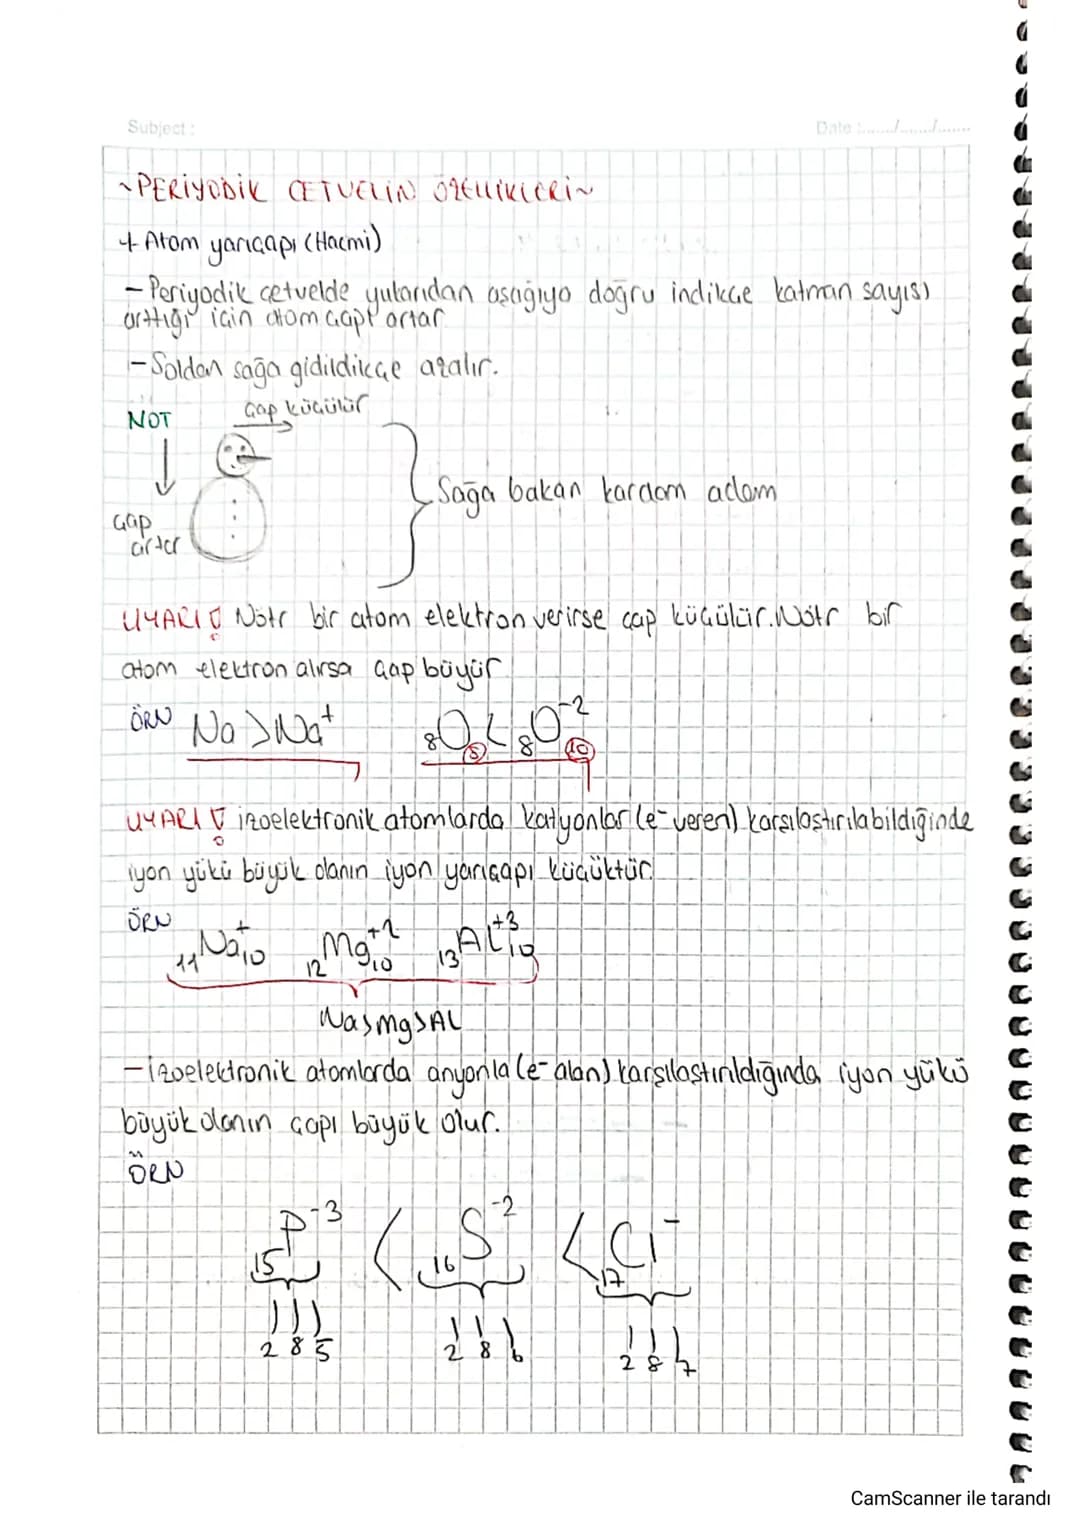 Subject :
Date :......./......./.......
~PERİYODİK CETVELİN ÖZELLİKLERİ~
+ Atom yarıçapı (Hacmi)
- Periyodik çetvelde yukarıdan aşağıya doğru indikçe katman sayısı
arttığı için atom çapı artar
- Soldan sağa gidildikçe azalır.
NOT
çap küçülür
çap
artar
Sağa bakan kardam adam
UYARI! Nötr bir atom elektron verirse çap küçülür. Nötr bir
atom elektron alırsa çap büyür
ÖRN Na > Na⁺ ₈O₈ < ₈O⁻²₁₀
UYARI! izoelektronik atomlarda katyonlar (e⁻ veren) karşılaştırılabildiğinde
iyon yükü büyük olanın iyon yarıçapı küçüktür.
ÖRN
₁₁Na⁺₁₀ ₁₂Mg⁺²₁₀ ₁₃AL⁺³₁₀
Na>mg>AL
- izoelektronik atomlarda anyonla (e⁻ alan) karşılaştırıldığında iyon yükü
büyük olanın çapı büyük olur.
ÖRN
₁₅P⁻³ < ₁₆S⁻² < ₁₇Cl⁻
2 8 5 2 8 6 2 8 7
CamScanner ile tarandı